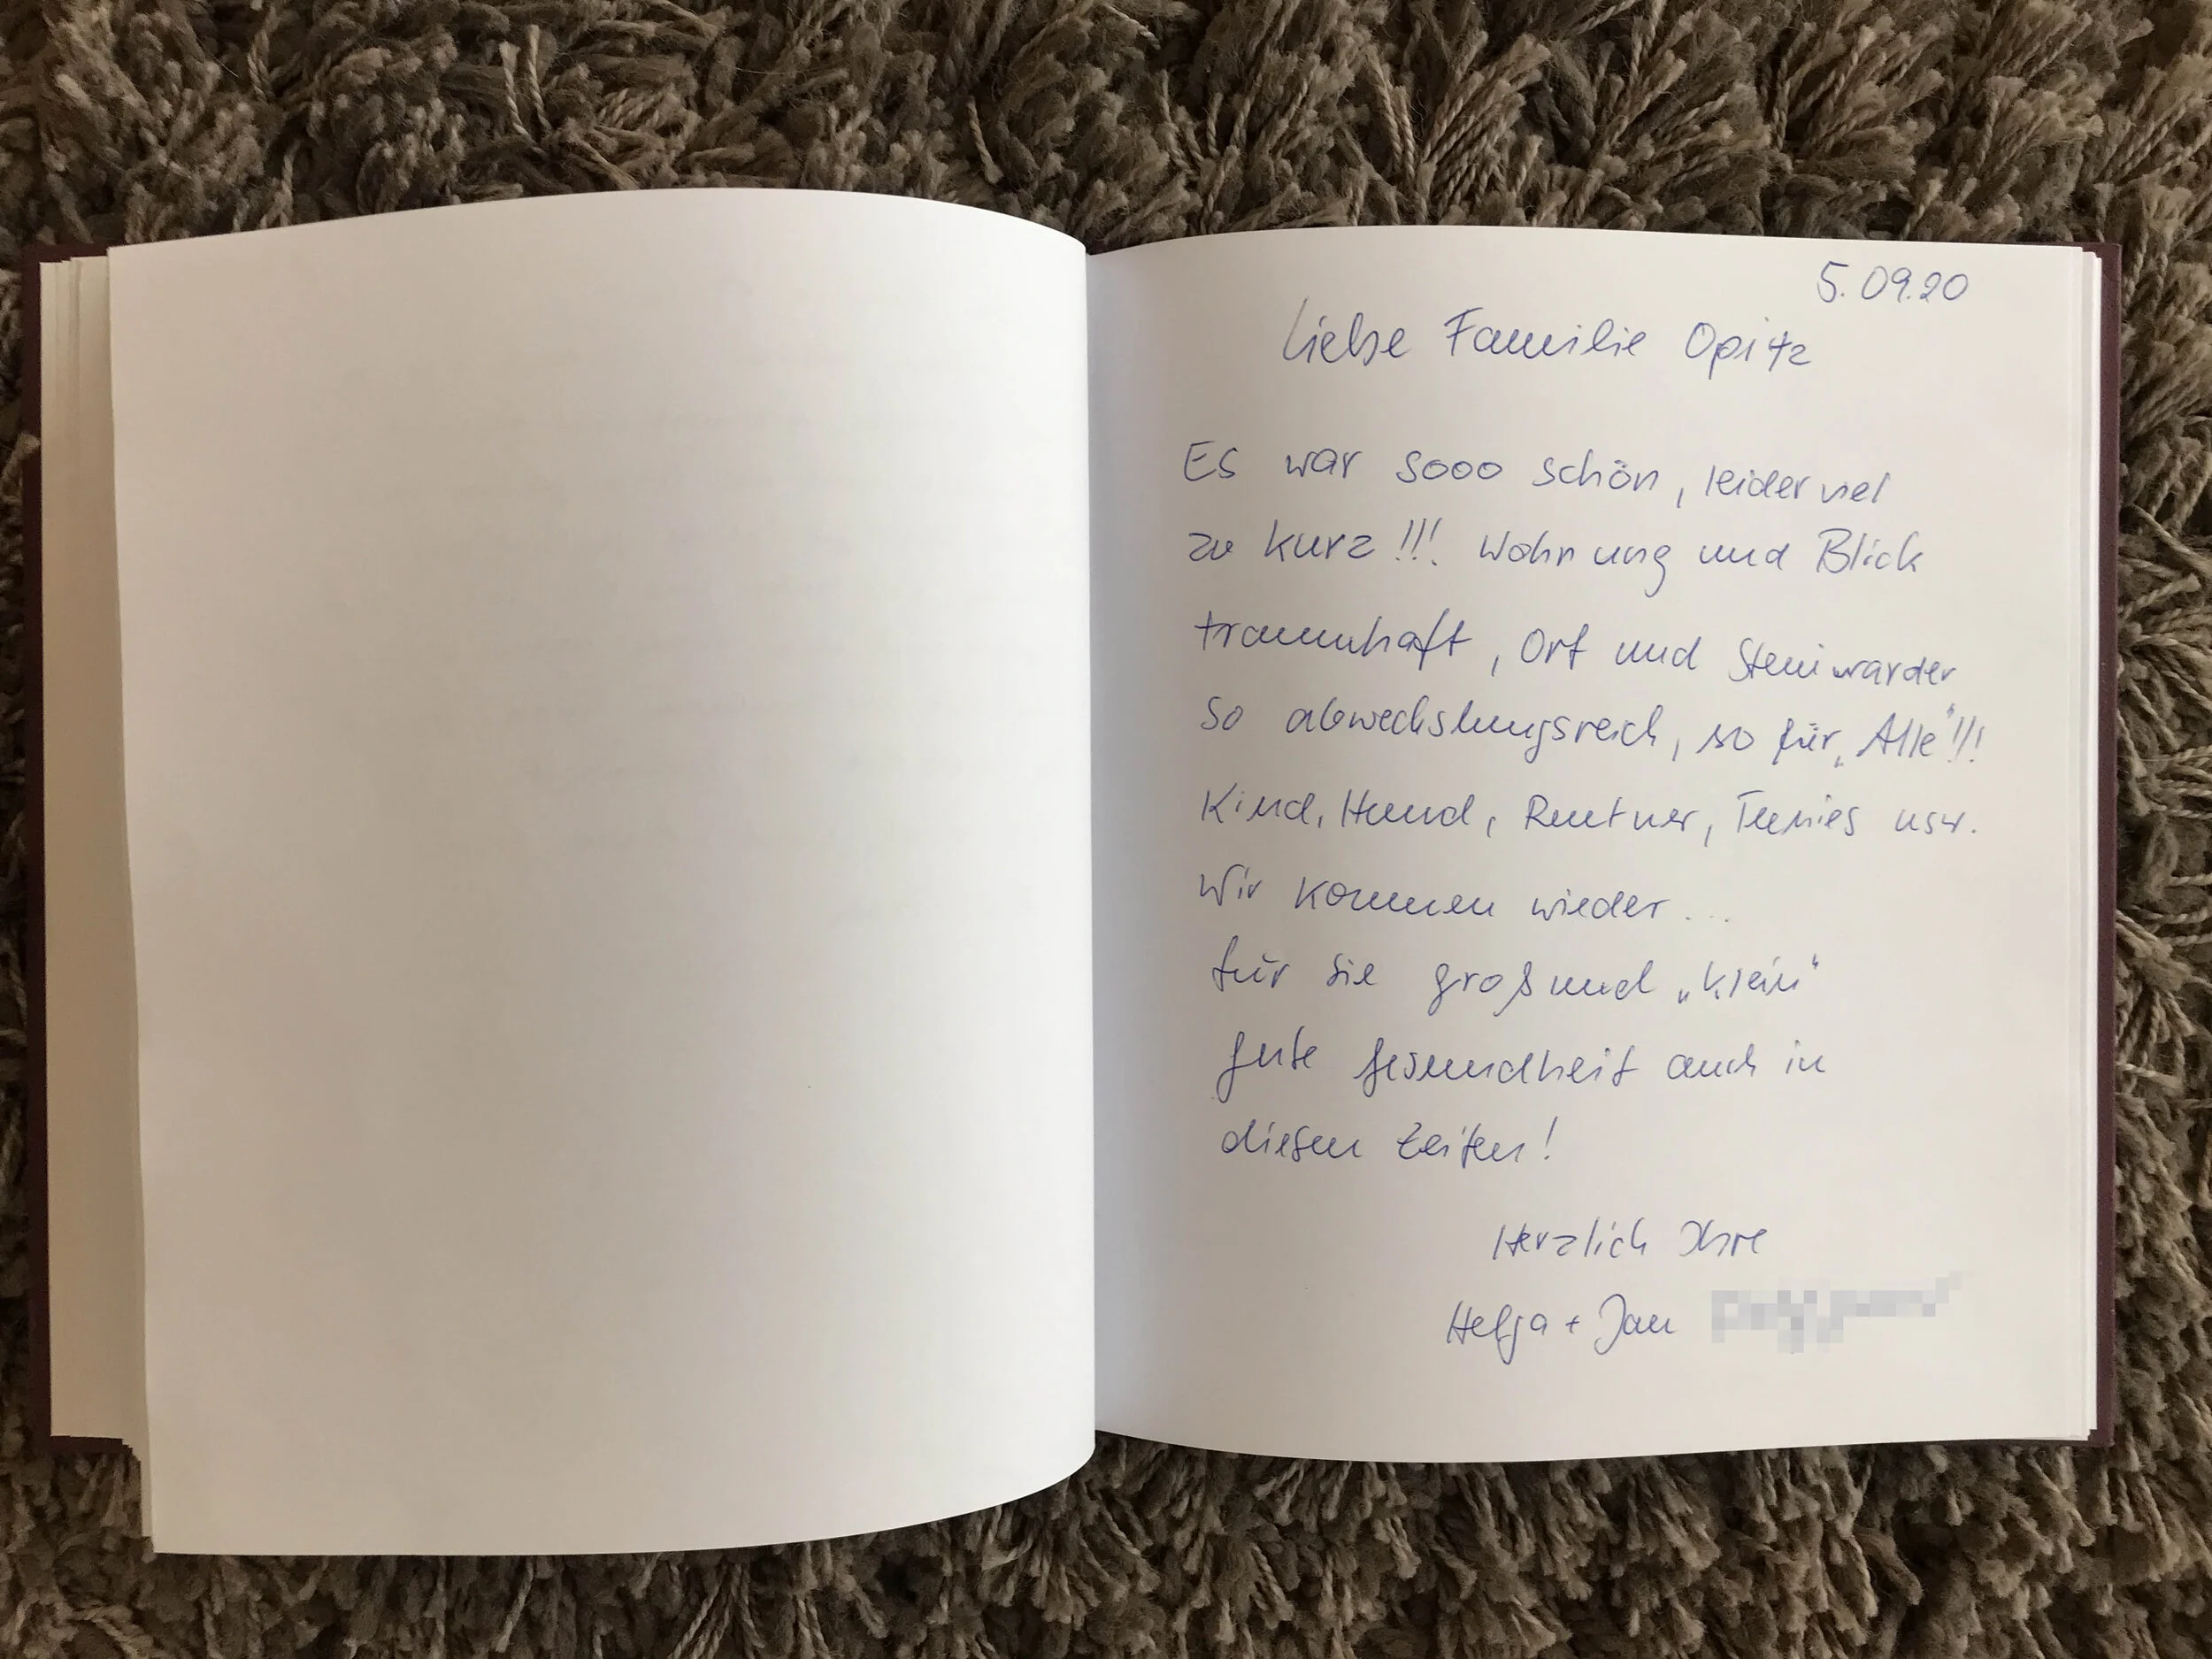 5.09.20
Liebe Familie Opitz
Es war sooo schön, leider viel
zu kurz!!! Wohnung und Blick
traumhaft, Ort und Steinwarder
so abwechslungsreich, so für „Alle“!!!
Kind, Hund, Rentner, Teenies usw.
Wir kommen wieder...
für Sie groß und „klein“
gute Gesundheit auch in
diesen Zeiten!
Herzlich Ihre
Helga + Jan